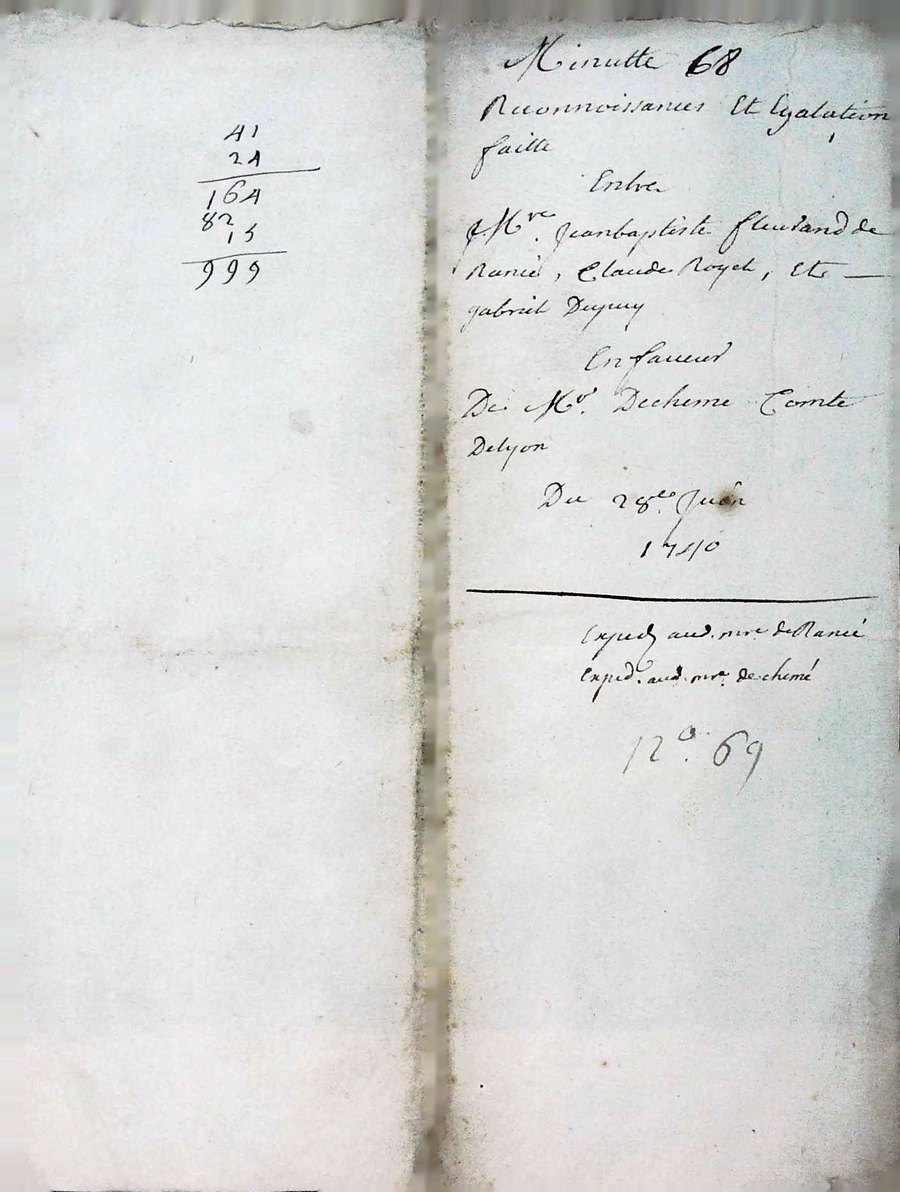 41
24
164
82
15
999
Minutte 68
Reconnoissances Et Egalation
faitte
Entre
Mre. Jeanbaptiste fleurand de
Ranié, Claude Royet, Et
gabriel Dupuy
En faveur
De Mr. Dechemé Comte
Delyon
Du 28e. Juin
1740
Exped aud. mre de Ranié
Exped. aud. mre. de chemé
No. 69